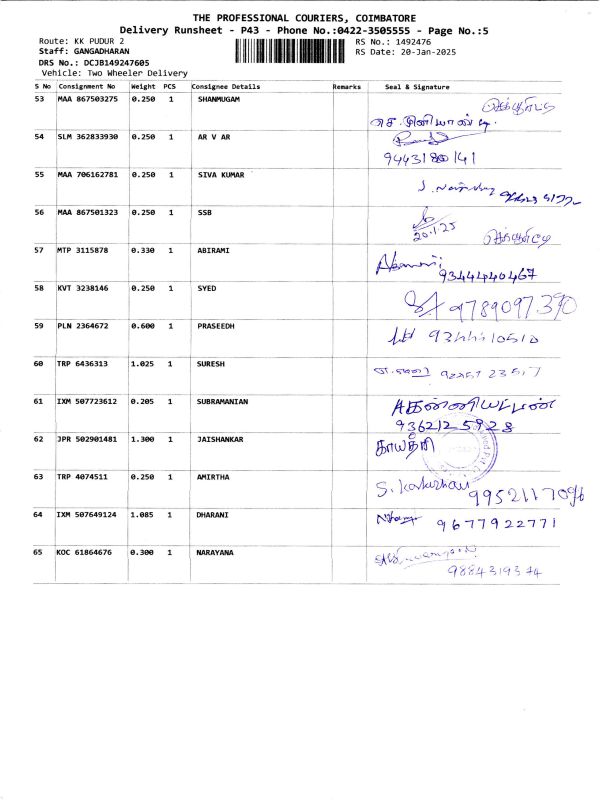 THE PROFESSIONAL COURIERS, COIMBATORE
Delivery Runsheet - P43 - Phone No.:0422-3505555 - Page No.:5
Route: KK PUDUR 2 RS No.: 1492476
Staff: GANGADHARAN RS Date: 20-Jan-2025
DRS No.: DCJB149247605
Vehicle: Two Wheeler Delivery
S No Consignment No Weight PCS Consignee Details Remarks Seal & Signature
53 MAA 867503275 0.250 1 SHANMUGAM
54 SLM 362833930 0.250 1 AR V AR
55 MAA 706162781 0.250 1 SIVA KUMAR
56 MAA 867501323 0.250 1 SSB
20.1.25
57 MTP 3115878 0.330 1 ABIRAMI
9344440467
58 KVT 3238146 0.250 1 SYED
9789097390
59 PLN 2364672 0.600 1 PRASEEDH
60 TRP 6436313 1.025 1 SURESH
61 IXM 507723612 0.205 1 SUBRAMANIAN
9362125928
62 JPR 502901481 1.300 1 JAISHANKAR காயத்ரி
63 TRP 4074511 0.250 1 AMIRTHA
9952117096
64 IXM 507649124 1.085 1 DHARANI 9677922771
65 KOC 61864676 0.300 1 NARAYANA